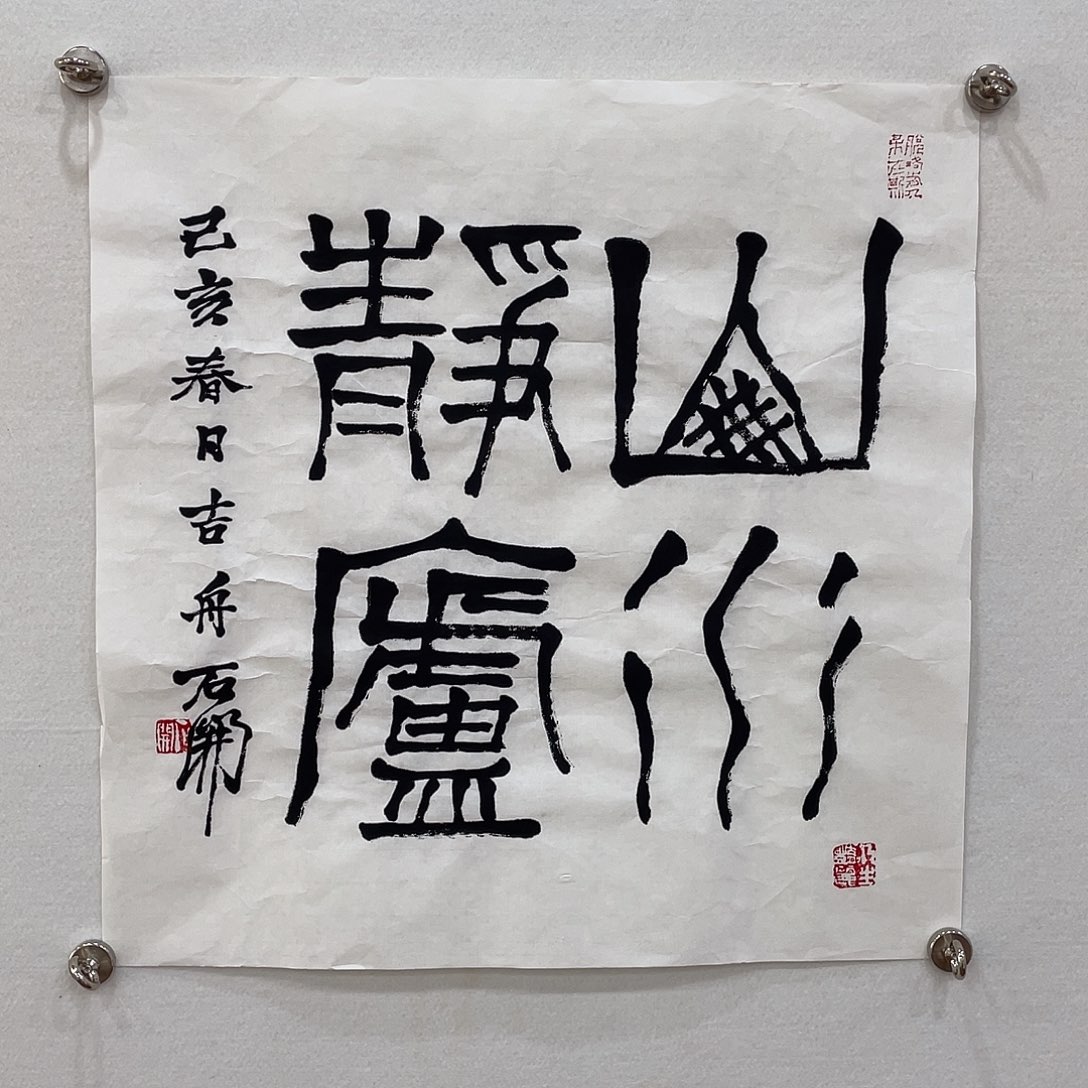 山水
靜廬
己亥春日吉舟石開